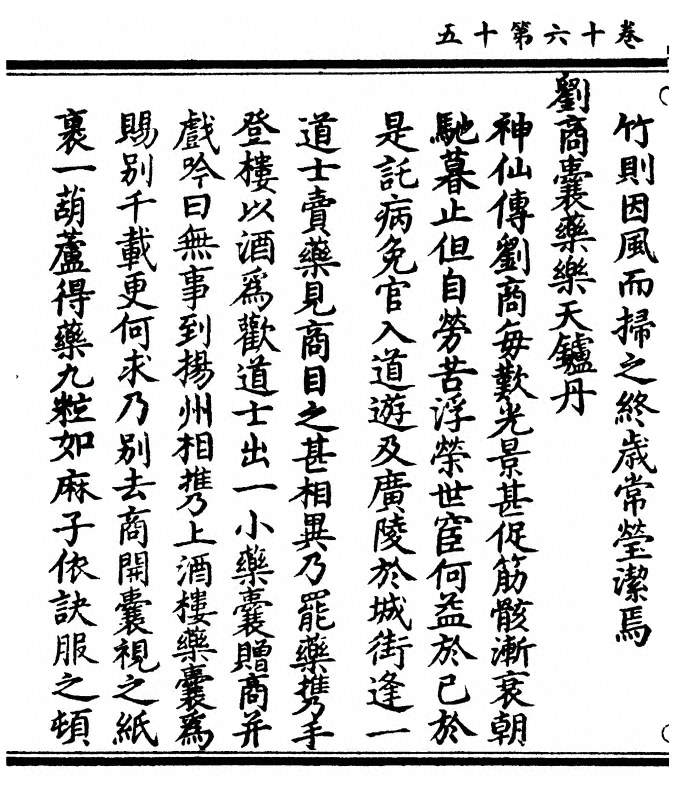 卷十六第十五
竹則因風而掃之終歲常瑩潔焉
劉商囊藥樂天鑪丹
神仙傳劉商每歎光景甚促筋骸漸衰朝
馳暮止但自勞苦浮榮世宦何益於己於
是託病免官入道遊及廣陵於城街逢一
道士賣藥見商目之甚相異乃罷藥携手
登樓以酒爲歡道士出一小藥囊贈商并
戲吟曰無事到揚州相携上酒樓藥囊爲
賜別千載更何求乃別去商開囊視之紙
裹一葫蘆得藥九粒如麻子依訣服之頓